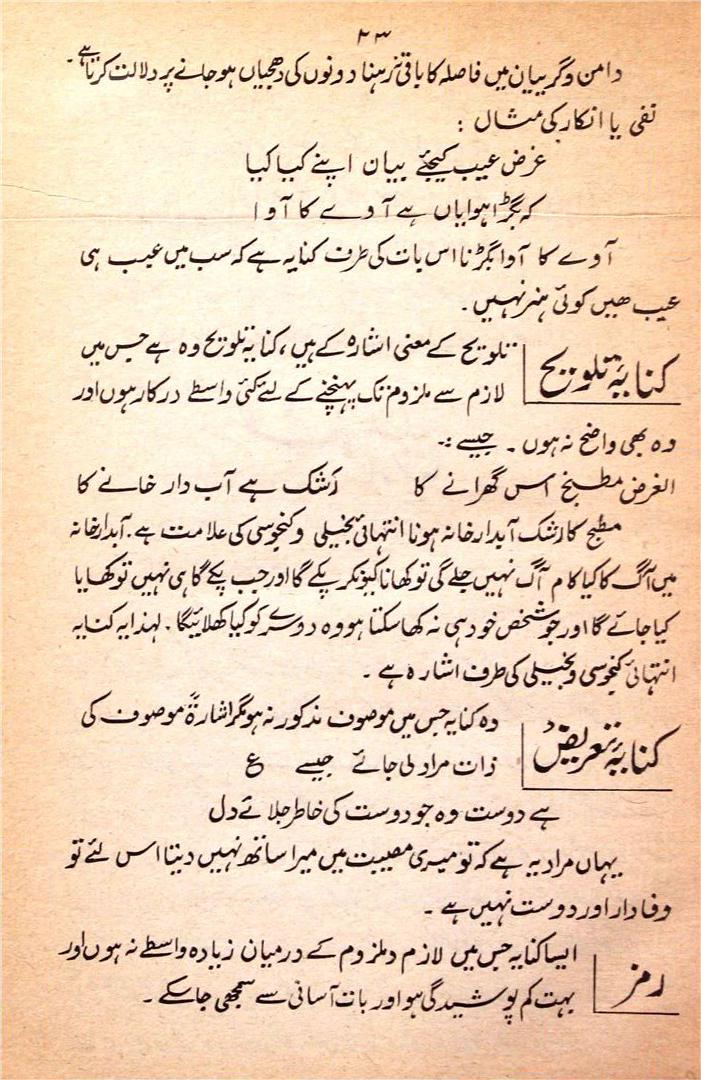 ۴۳
دامن و گریبان میں فاصلہ کا باقی نہ رہنا دونوں کی دھجیاں ہو جانے پر دلالت کرتا ہے۔
نفی یا انکار کی مثال :
غرض عیب کیجئے بیان اپنے کیا کیا
کہ بگڑا ہوا یاں ہے آوے کا آوا
آوے کا آوا بگڑنا اس بات کی طرف کنایہ ہے کہ سب میں عیب ہی
عیب ھیں کوئی ہنر نہیں۔
کنایۂ تلویح
تلویح کے معنی اشارہ کے ہیں، کنایۂ تلویح وہ ہے جس میں
لازم سے ملزوم تک پہنچنے کے لئے کئی واسطے درکار ہوں اور
وہ بھی واضح نہ ہوں۔ جیسے :-
الغرض مطبخ اس گھرانے کا رَشک ہے آب دار خانے کا
مطبخ کا رشک آبدار خانہ ہونا انتہائی بخیلی و کنجوسی کی علامت ہے۔ آبدار خانہ
میں آگ کا کیا کام آگ نہیں جلے گی تو کھانا کیونکر پکے گا اور جب پکے گا ہی نہیں تو کھایا
کیا جائے گا اور جو شخص خود ہی نہ کھا سکتا ہو وہ دوسرے کو کیا کھلائیگا۔ لہذا یہ کنایہ
انتہائی کنجوسی و بخیلی کی طرف اشارہ ہے۔
کنایۂ تعریض
وہ کنایہ جس میں موصوف مذکور نہ ہو مگر اشارۃً موصوف کی
ذات مراد لی جائے جیسے ع
ہے دوست وہ جو دوست کی خاطر جلائے دل
یہاں مراد یہ ہے کہ تو میری مصیبت میں میرا ساتھ نہیں دیتا اس لئے تو
وفادار اور دوست نہیں ہے۔
رمز
ایسا کنایہ جس میں لازم و ملزوم کے درمیان زیادہ واسطے نہ ہوں اور
بہت کم پوشیدگی ہو اور بات آسانی سے سمجھی جا سکے۔